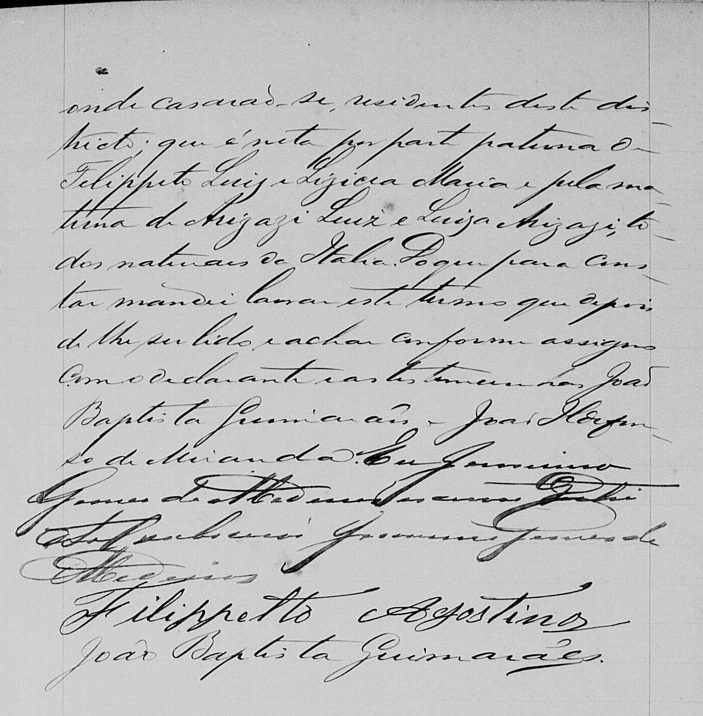 onde casarão-se, residentes deste dis-
tricto; que é neta por parte paterna de
Filippeto Luiz e Ligicia Maria e pela ma-
terna de Arigazi Luiz e Luiza Arigazi, to-
dos naturaes da Italia. Do que para cons-
tar mandei lavrar este termo que depois
de lhe ser lido e achar conforme assigna
com o declarante e as testemunhas João
Baptista Guimarães e João Ildefon-
so de Miranda. Eu Jeronimo
Gomes de Medeiros escrivão
subscrevi Jeronimo Gomes de
Medeiros
Filippetto Agostino
João Baptista Guimarães.